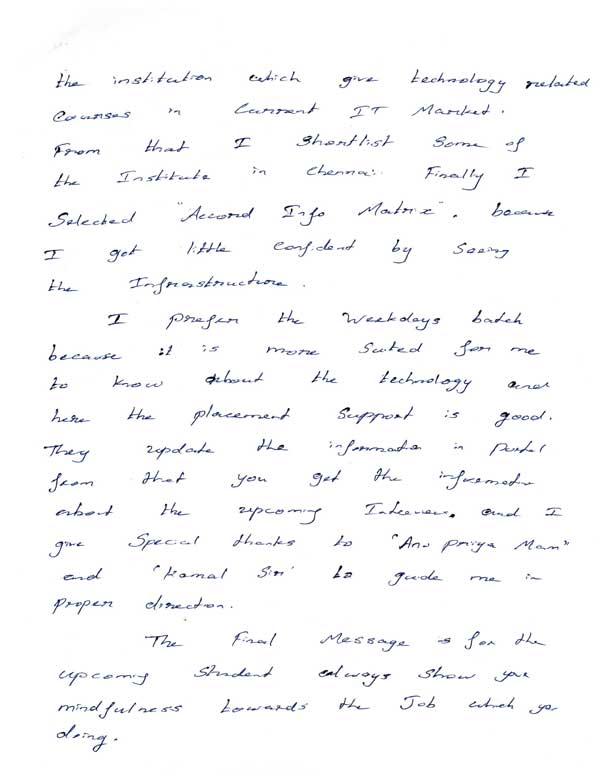 the institution which give technology related
Courses in Current IT Market.
From that I Shortlist Some of
the Institute in Chennai. Finally I
Selected "Accord Info Matrix". because
I got little confident by Seeing
the Infrastructure.
I prefer the Weekdays batch
because it is more Suted for me
to know about the technology and
here the placement Support is good.
They update the information in Portal
from that you get the information
about the upcoming Interview. and I
give Special thanks to "Anu priya Mam"
and "Kamal Sir" to guide me in
proper direction.
The Final Message is for the
upcoming Student always Show your
mindfulness towards the Job which you
doing.